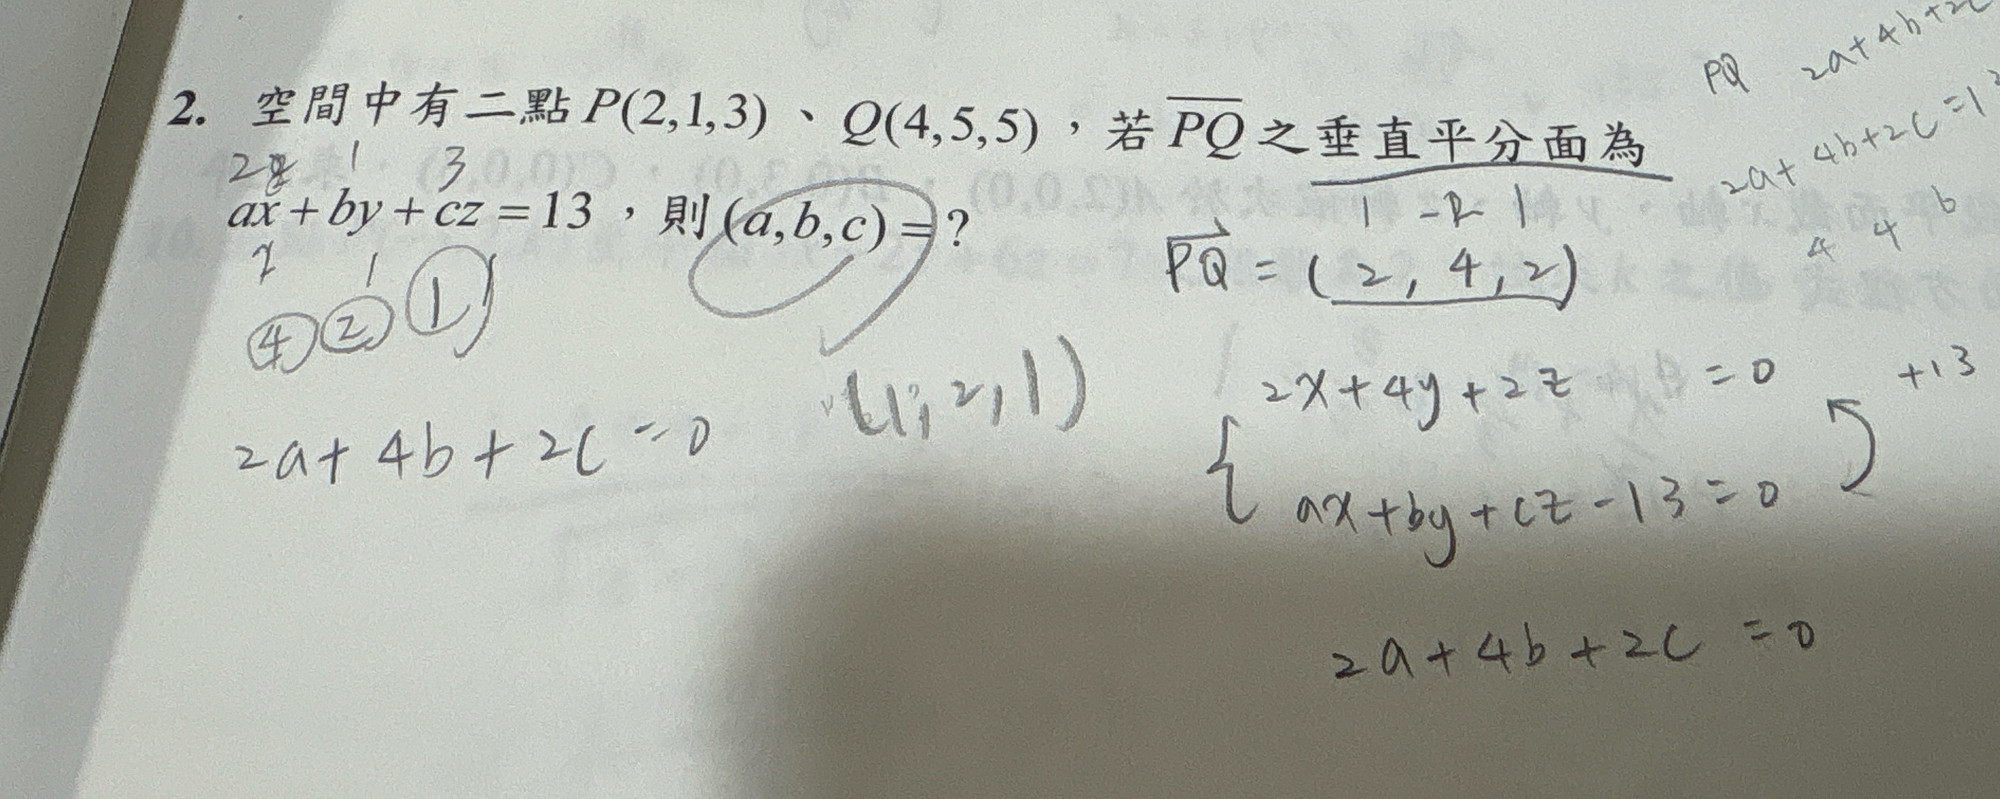 2. 空間中有二點P(2,1,3)、Q(4,5,5),若PQ之垂直平分面為
ax+by+cz=13,則(a,b,c)=?
1 3
2 1
④ ② ①
2a+4b+2c=0
(1,2,1)
PQ 2a+4b+2c
2a+4b+2c=13
4 4 6
1 -2 1
PQ=(2,4,2)
2x+4y+2z=0 +13
ax+by+cz-13=0
2a+4b+2c=0